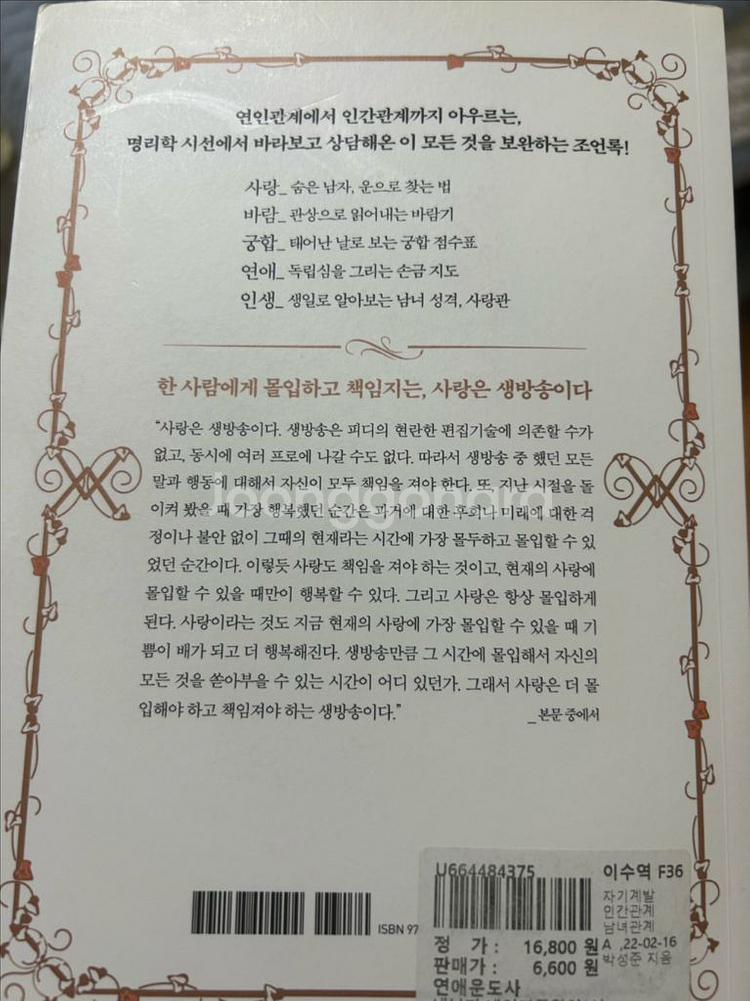 연인관계에서 인간관계까지 아우르는,
명리학 시선에서 바라보고 상담해온 이 모든 것을 보완하는 조언록!
사랑_ 숨은 남자, 운으로 찾는 법
바람_ 관상으로 읽어내는 바람기
궁합_ 태어난 날로 보는 궁합 점수표
연애_ 독립심을 그리는 손금 지도
인생_ 생일로 알아보는 남녀 성격, 사랑관
한 사람에게 몰입하고 책임지는, 사랑은 생방송이다
“사랑은 생방송이다. 생방송은 피디의 현란한 편집기술에 의존할 수가
없고, 동시에 여러 프로에 나갈 수도 없다. 따라서 생방송 중 했던 모든
말과 행동에 대해서 자신이 모두 책임을 져야 한다. 또, 지난 시절을 돌
이켜 봤을 때 가장 행복했던 순간은 과거에 대한 후회나 미래에 대한 걱
정이나 불안 없이 그때의 현재라는 시간에 가장 몰두하고 몰입할 수 있
었던 순간이다. 이렇듯 사랑도 책임을 져야 하는 것이고, 현재의 사랑에
몰입할 수 있을 때만이 행복할 수 있다. 그리고 사랑은 항상 몰입하게
된다. 사랑이라는 것도 지금 현재의 사랑에 가장 몰입할 수 있을 때 기
쁨이 배가 되고 더 행복해진다. 생방송만큼 그 시간에 몰입해서 자신의
모든 것을 쏟아부을 수 있는 시간이 어디 있던가. 그래서 사랑은 더 몰
입해야 하고 책임져야 하는 생방송이다.”
_ 본문 중에서
joonggonara
ISBN 97
U664484375
이수역 F36
자기계발
인간관계
남녀관계
정 가 : 16,800 원
A ,22-02-16
판매가 : 6,600 원
박성준 지음
연애운도사